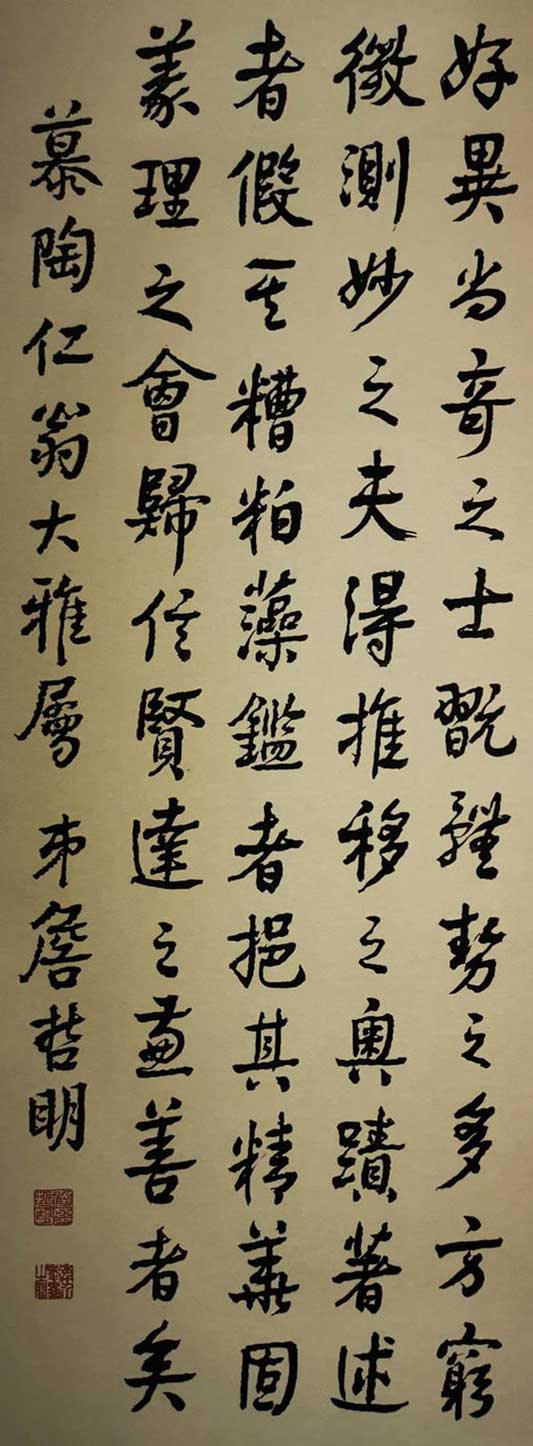 好異尚奇之士翫體勢之多方窮
微測妙之夫得推移之奧蹟著述
者假其糟粕藻鑑者挹其精華固
義理之會歸信賢達之兼善者矣
慕陶仁翁大雅屬 弟詹哲明